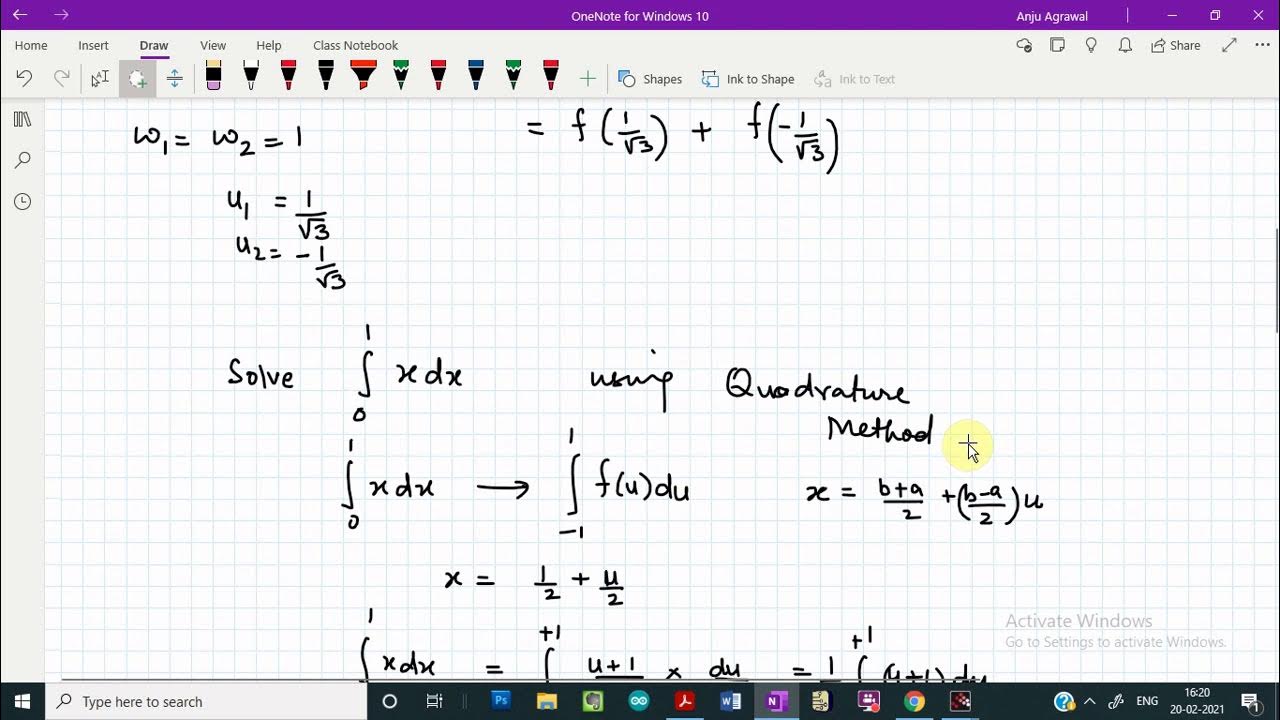 OneNote for Windows 10
Anju Agrawal
Home Insert Draw View Help Class Notebook Share
Shapes Ink to Shape Ink to Text
ω₁ = ω₂ = 1
= f(1/√3) + f(-1/√3)
u₁ = 1/√3
u₂ = -1/√3
Solve ∫₀¹ x dx using Quadrature
Method
∫₀¹ x dx → ∫₋₁¹ f(u) du x = (b+a)/2 + ((b-a)/2) u
x = 1/2 + u/2
Activate Windows
Go to Settings to activate Windows.
∫¹ x dx = ∫⁺¹ u+1 × du = 1 ∫⁺¹ (u+1) du
Type here to search
ENG
16:20
20-02-2021